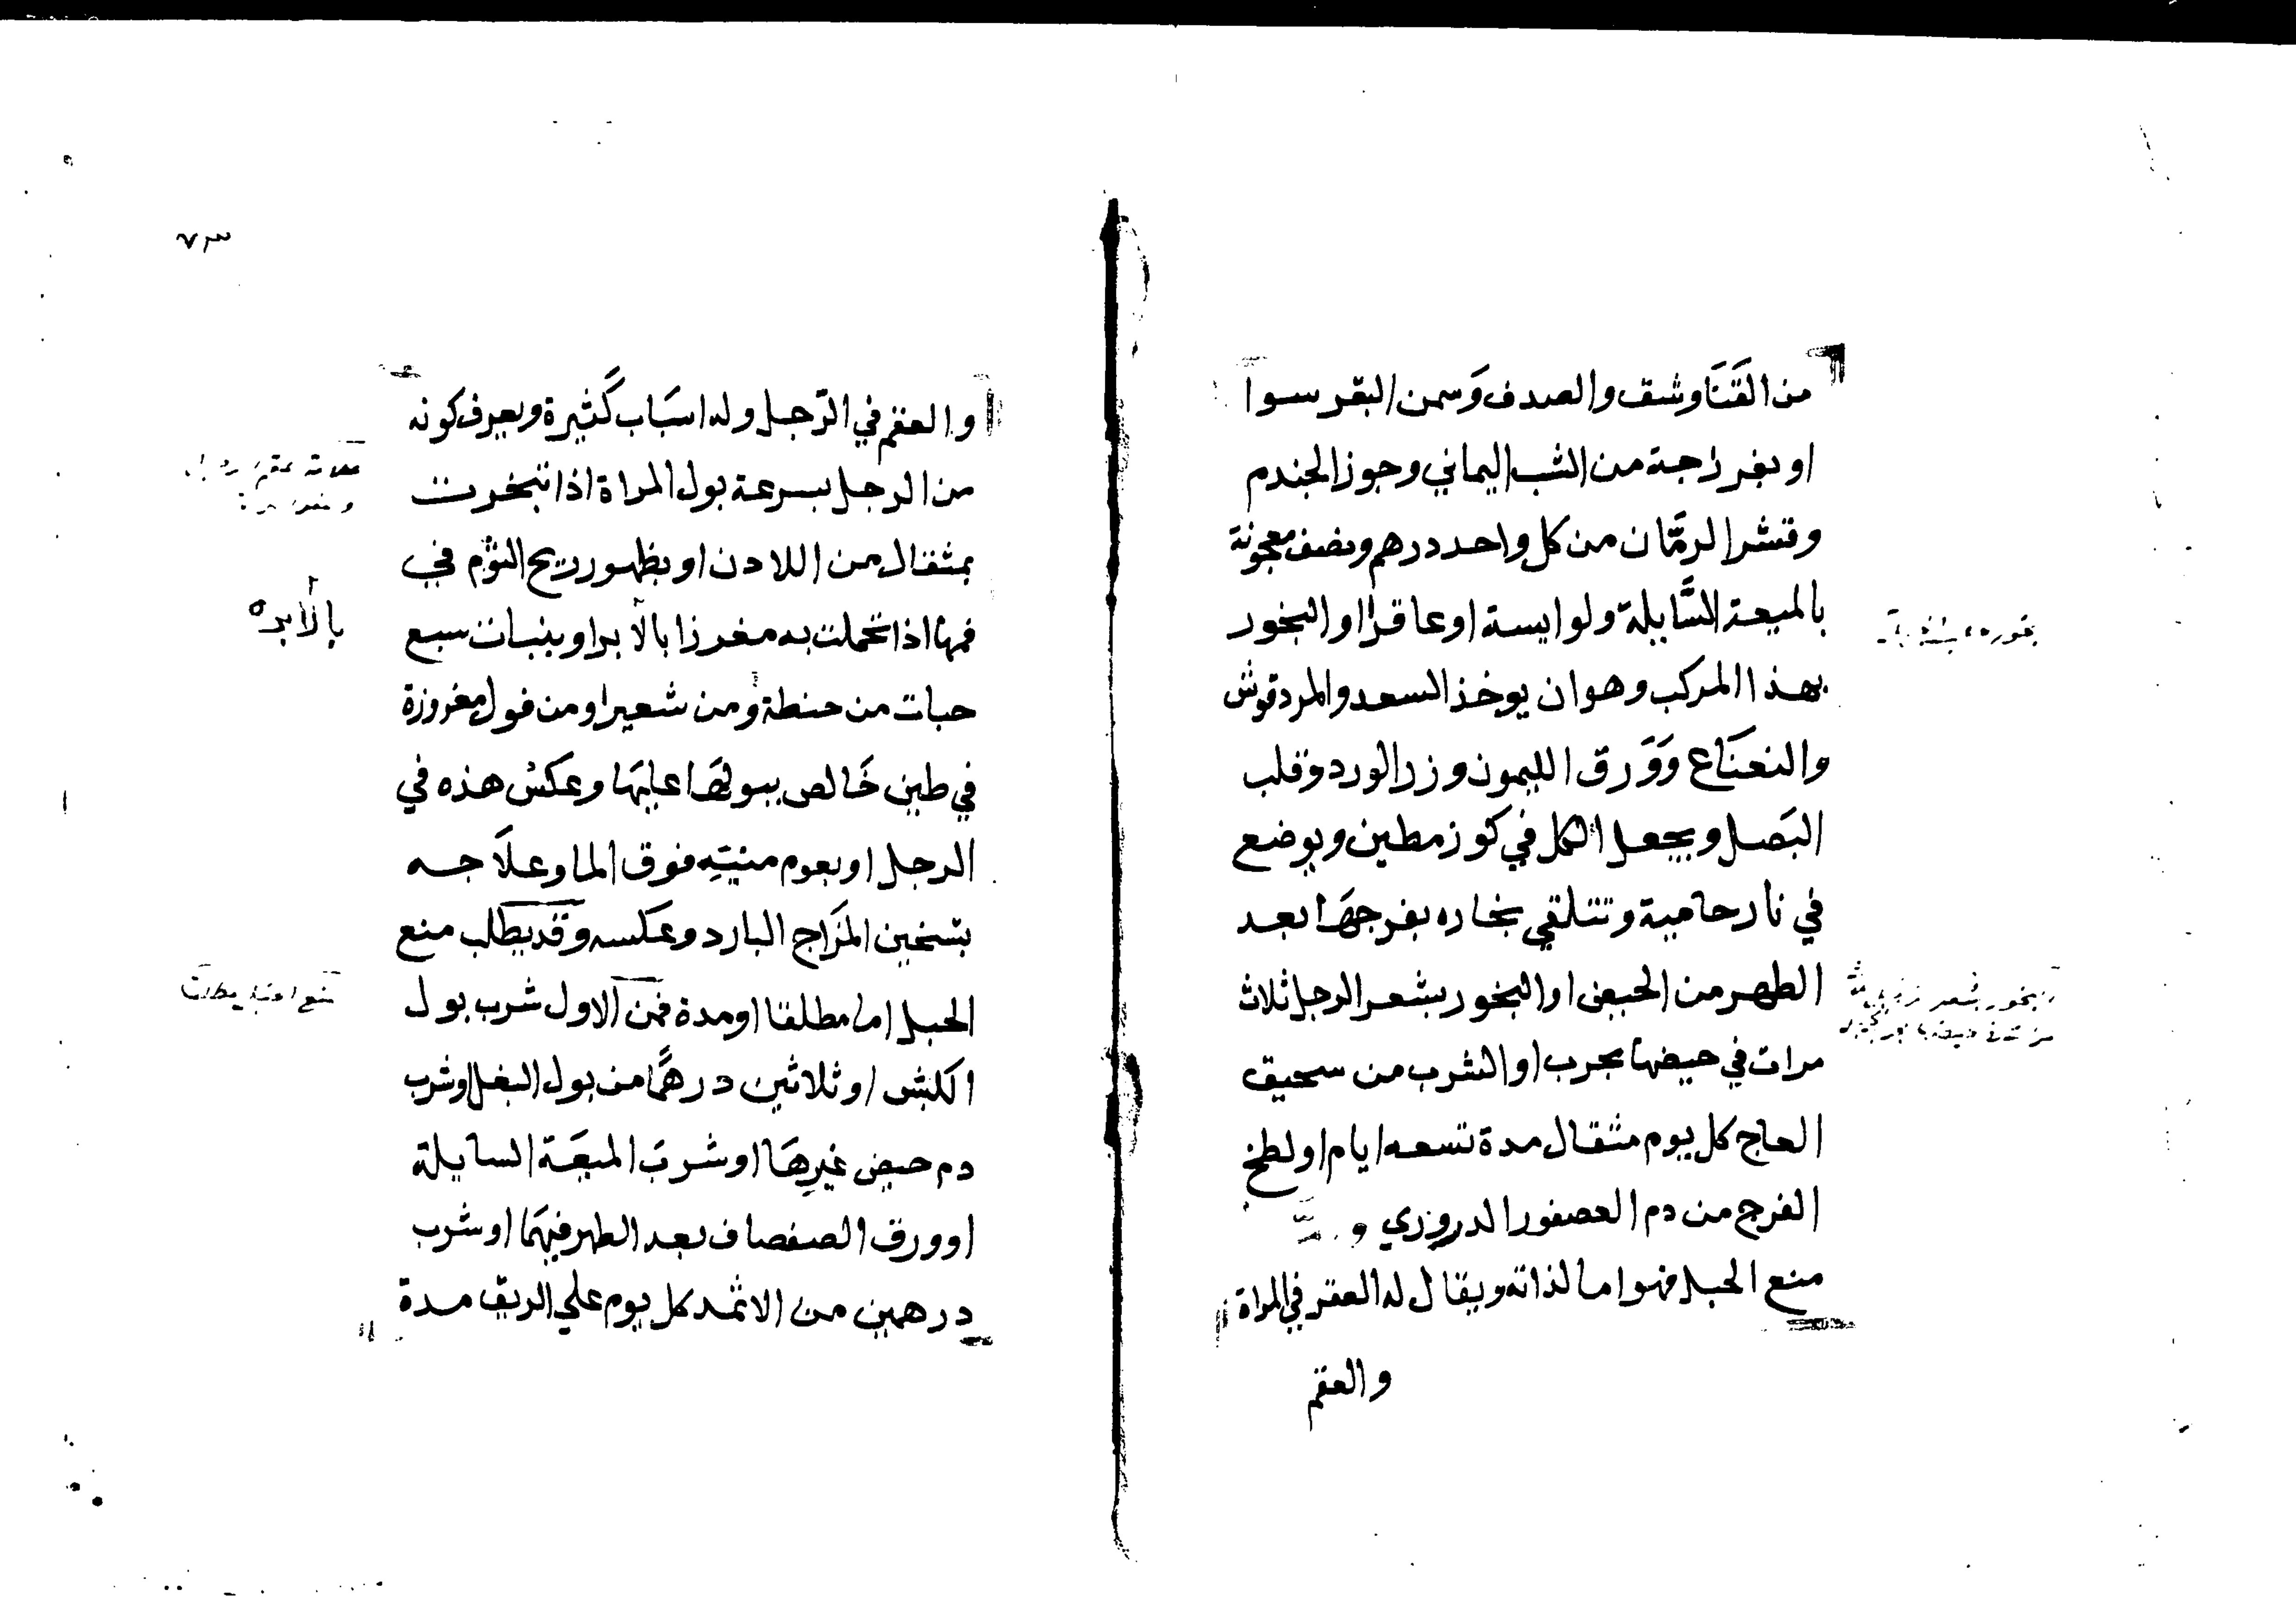 من القَنَاوشق والصدف وَسمن البقر سوا
او بفرزجة من الشب اليماني وجوز الجندم
وقشر الرمَّان من كل واحد درهم ونصف معجونة
بالميعة السَّايلة ولو ايسة او عاقرا او البخور
بهذا المركب وهو ان يوخذ السعد والمردقوش
والنعنَاع وَوَرق الليمون وزر الورد وقلب
البَصل ويجعل الكل في كوز مطين ويوضع
في نار حامية وتتلقي بخاره بفرجهَا بعد
الطهر من الحيض او البخور بشعر الرجل ثلاث
مرات في حيضها مجرب او الشرب من سحيق
العاج كل يوم مثقال مدة تسعه ايام او لطخ
الفرج من دم العصفور الدروزي و
منع الحبل فهو اما لذاته ويقال له العقر في المراة
والعقم
٧٣
والعقم في الرّجل وله اسبَاب كَثيرة ويعرف كونه
من الرجل بسرعة بول المراة اذا تبخرت
بمثقال من اللادن او بظهور ريح الثوم في
فمها اذا تحملت به مغرزا بالابر او بنبات سبع
حبات من حنطة ومن شعير او من فول مغروزة
في طين خَالص ببولهَا عليهَا وعكس هذه في
الرجل او بعوم منيّتِه فوق الما وعلاَجه
بتسخين المزَاج البارد وعكسه وقد يطلب منع
الحبل اما مطلقا او مدة فمن الاول شرب بول
الكبش او ثلاثين درهمًا من بول البغل او شرب
دم حيض غيرِهَا او شربَ الميعَة السايلة
او ورق الصفصاف بعد الطهر فيهمَا او شرب
درهمين من الاثمد كل يوم علي الريق مدة
بالابره
منع الحبل مطلقا